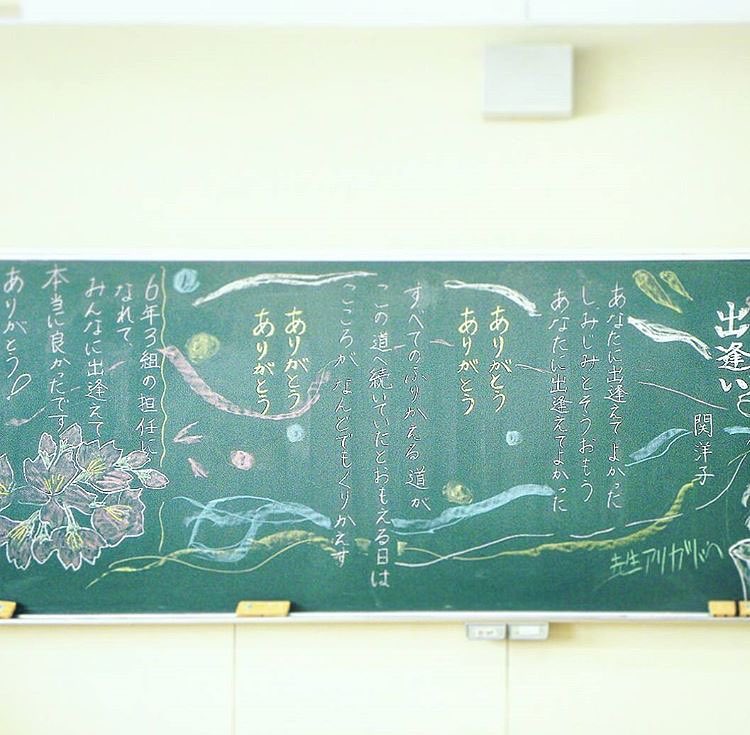 出逢い
関洋子
あなたに出逢えてよかった
しみじみとそうおもう
あなたに出逢えてよかった
ありがとう
ありがとう
すべてのふりかえる道が
この道へ続いていたとおもえる日は
こころが なんどでもくりかえす
ありがとう
ありがとう
6年3組の担任に
なれて、
みんなに出逢えて
本当に良かったです
ありがとう!
先生アリガトウ